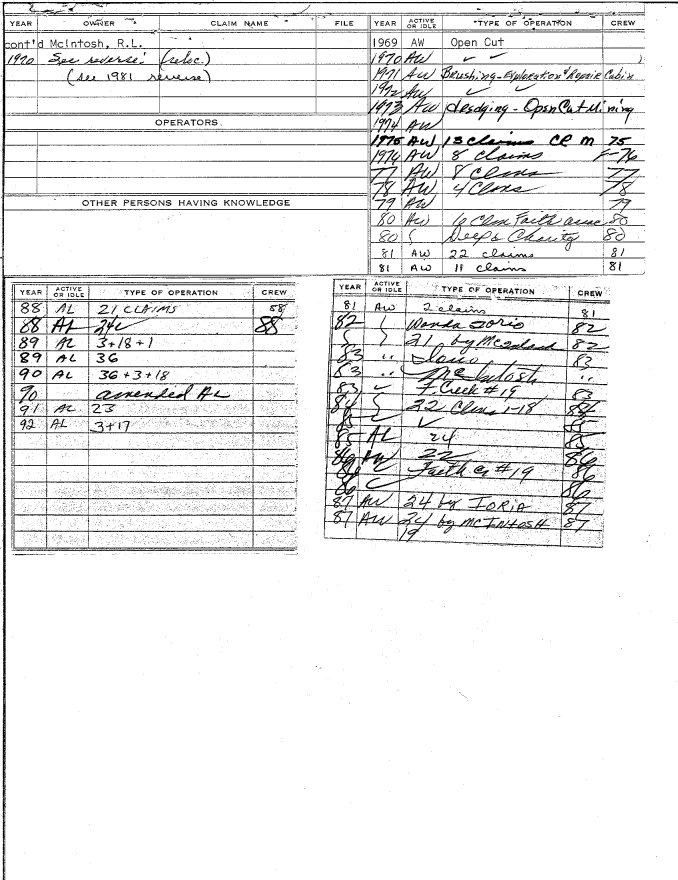 YEAR OWNER CLAIM NAME FILE
cont'd McIntosh, R.L.
1970 See reverse: (reloc.)
(see 1981 reverse)
OPERATORS
OTHER PERSONS HAVING KNOWLEDGE
YEAR ACTIVE OR IDLE TYPE OF OPERATION CREW
1969 AW Open Cut
1970 AW ✓ ✓
1971 AW Brushing-Exploration & Repair Cabin
1972 AW ✓ ✓
1973 AW - Open Cut Mining
1974 AW
1975 AW 13 claims 75
1976 AW 8 claims F-76
77 AW 8 Clms 77
78 AW 4 Clms 78
79 AW 79
80 AW 16 Clm Faith 80
80 Charity 80
81 AW 22 claims 81
81 AW 11 claims 81
YEAR ACTIVE OR IDLE TYPE OF OPERATION CREW
88 AL 21 CLAIMS 58
88 AL 24L 88
89 AL 3+18+1
89 AL 36
90 AL 36+3+18
90 amended AL
91 AL 23
92 AL 3+17
YEAR ACTIVE OR IDLE TYPE OF OPERATION CREW
81 AW 2 claims 81
82 Wanda Iorio 82
21 by McIntosh 82
83 " Iorio 83
83 " McIntosh "
83 ✓ F Creek #19 83
84 22 Clms 1-18 84
85 ✓ ✓ 85
85 AL 24 85
86 AW 22 86
86 ✓ Faith Cr #19 86
86 ✓ 86
87 AW 24 by IORIA 87
87 AW 24 by MCINTOSH 87
19